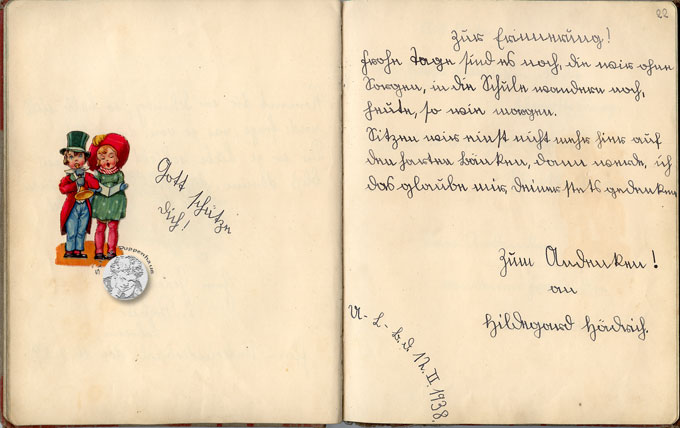 Gott schütze
dich!
22
Zur Erinnerung!
Frohe Tage sind es noch, die wir ohne
Sorgen, in die Schule wandern noch,
heute, so wie morgen.
Sitzen wir einst nicht mehr hier auf
den harten Bänken, dann werde, ich
das glaube mir, deiner stets gedenken
Zum Andenken!
an
Hildegard Hädrich.
II. 1938.